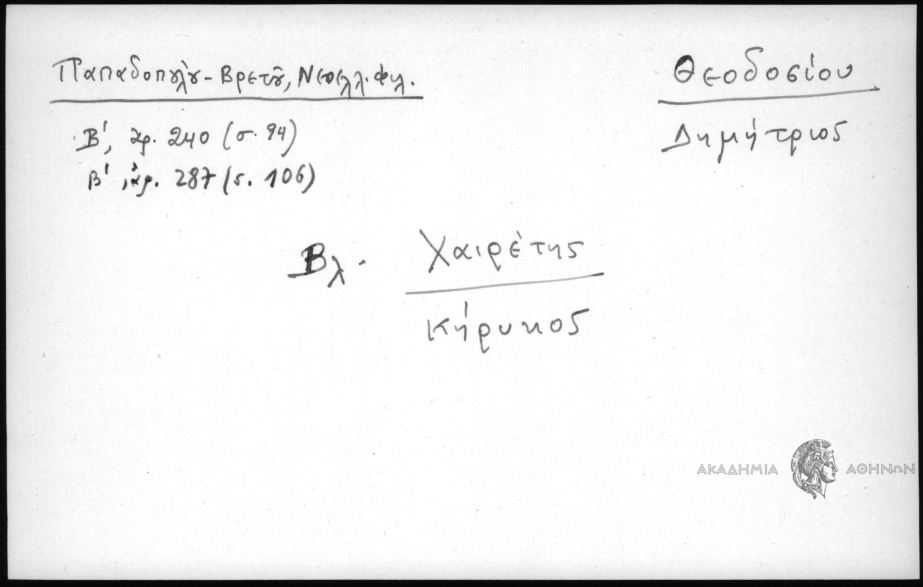 Παπαδοπούλου-Βρετοῦ, Νεοελλ. Φιλ.
Β', ἀρ. 240 (σ. 94)
Β', ἀρ. 287 (σ. 106)
Θεοδοσίου
Δημήτριος
Βλ. Χαιρέτης
Κήρυκος
ΑΚΑΔΗΜΙΑ ΑΘΗΝΩΝ